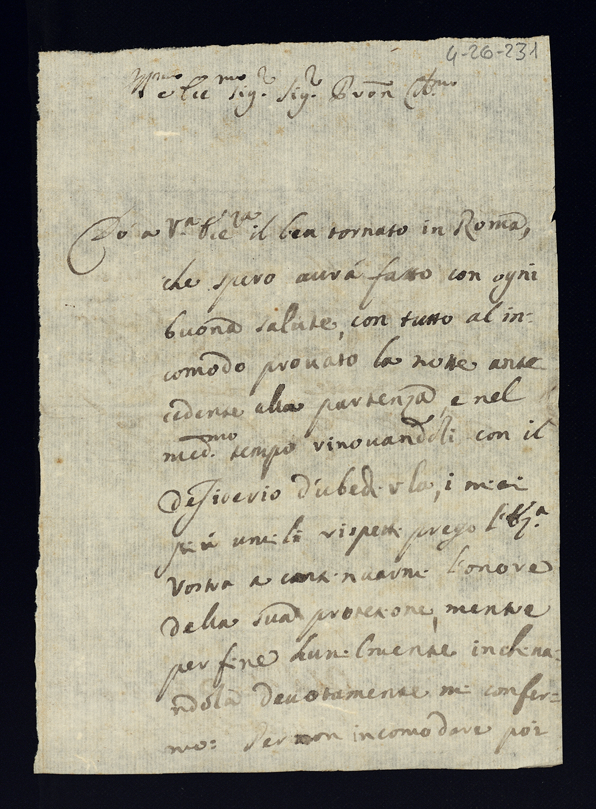 4-26-231
Ill.mo e Ecc.mo Sig.r Sig.r Pron Col.mo
Do a V.a Ecc.za il ben tornato in Roma,
che spero aurà fatto con ogni
buona salute, con tutto al in:
comodo prouato la notte ante
cedente alla partenza, e nel
med.mo tempo rinouandoli con il
desiderio d'ubedirla, i miei
più umili rispetti prego l'E.za
Vostra a continuarmi l'onore
della sua protezione, mentre
per fine humilmente inchina:
ndola deuotamente mi confer:
mo: Per non incomodare poi